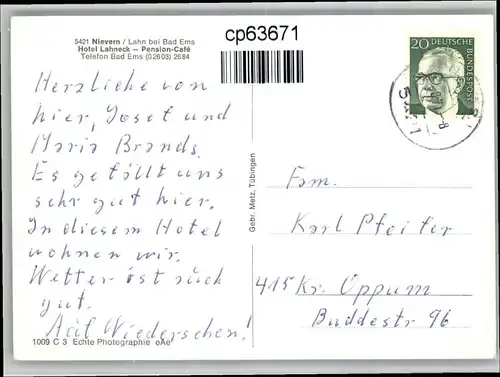 5421 Nievern / Lahn bei Bad Ems
Hotel Lahneck — Pension-Café
Telefon Bad Ems (02603) 2684
cp63671
20 DEUTSCHE BUNDESPOST
Herzliche von
hier, Josef und
Maria Brands.
Es gefällt uns
sehr gut hier.
In diesem Hotel
wohnen wir.
Wetter ist auch
gut.
Auf Wiedersehen!
1009 C 3 Echte Photographie
Gebr. Metz, Tübingen
Fam.
Karl Pfeifer
415 Kr. Oppum
Buddestr 96